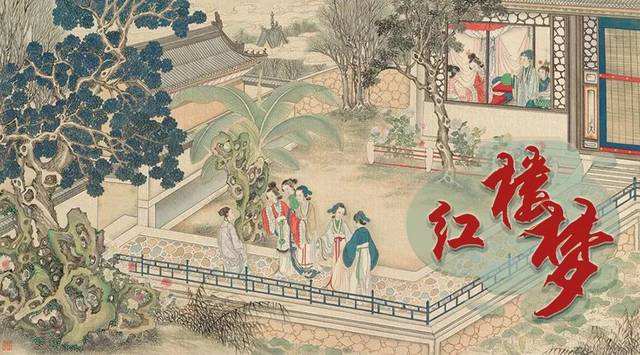 红楼梦